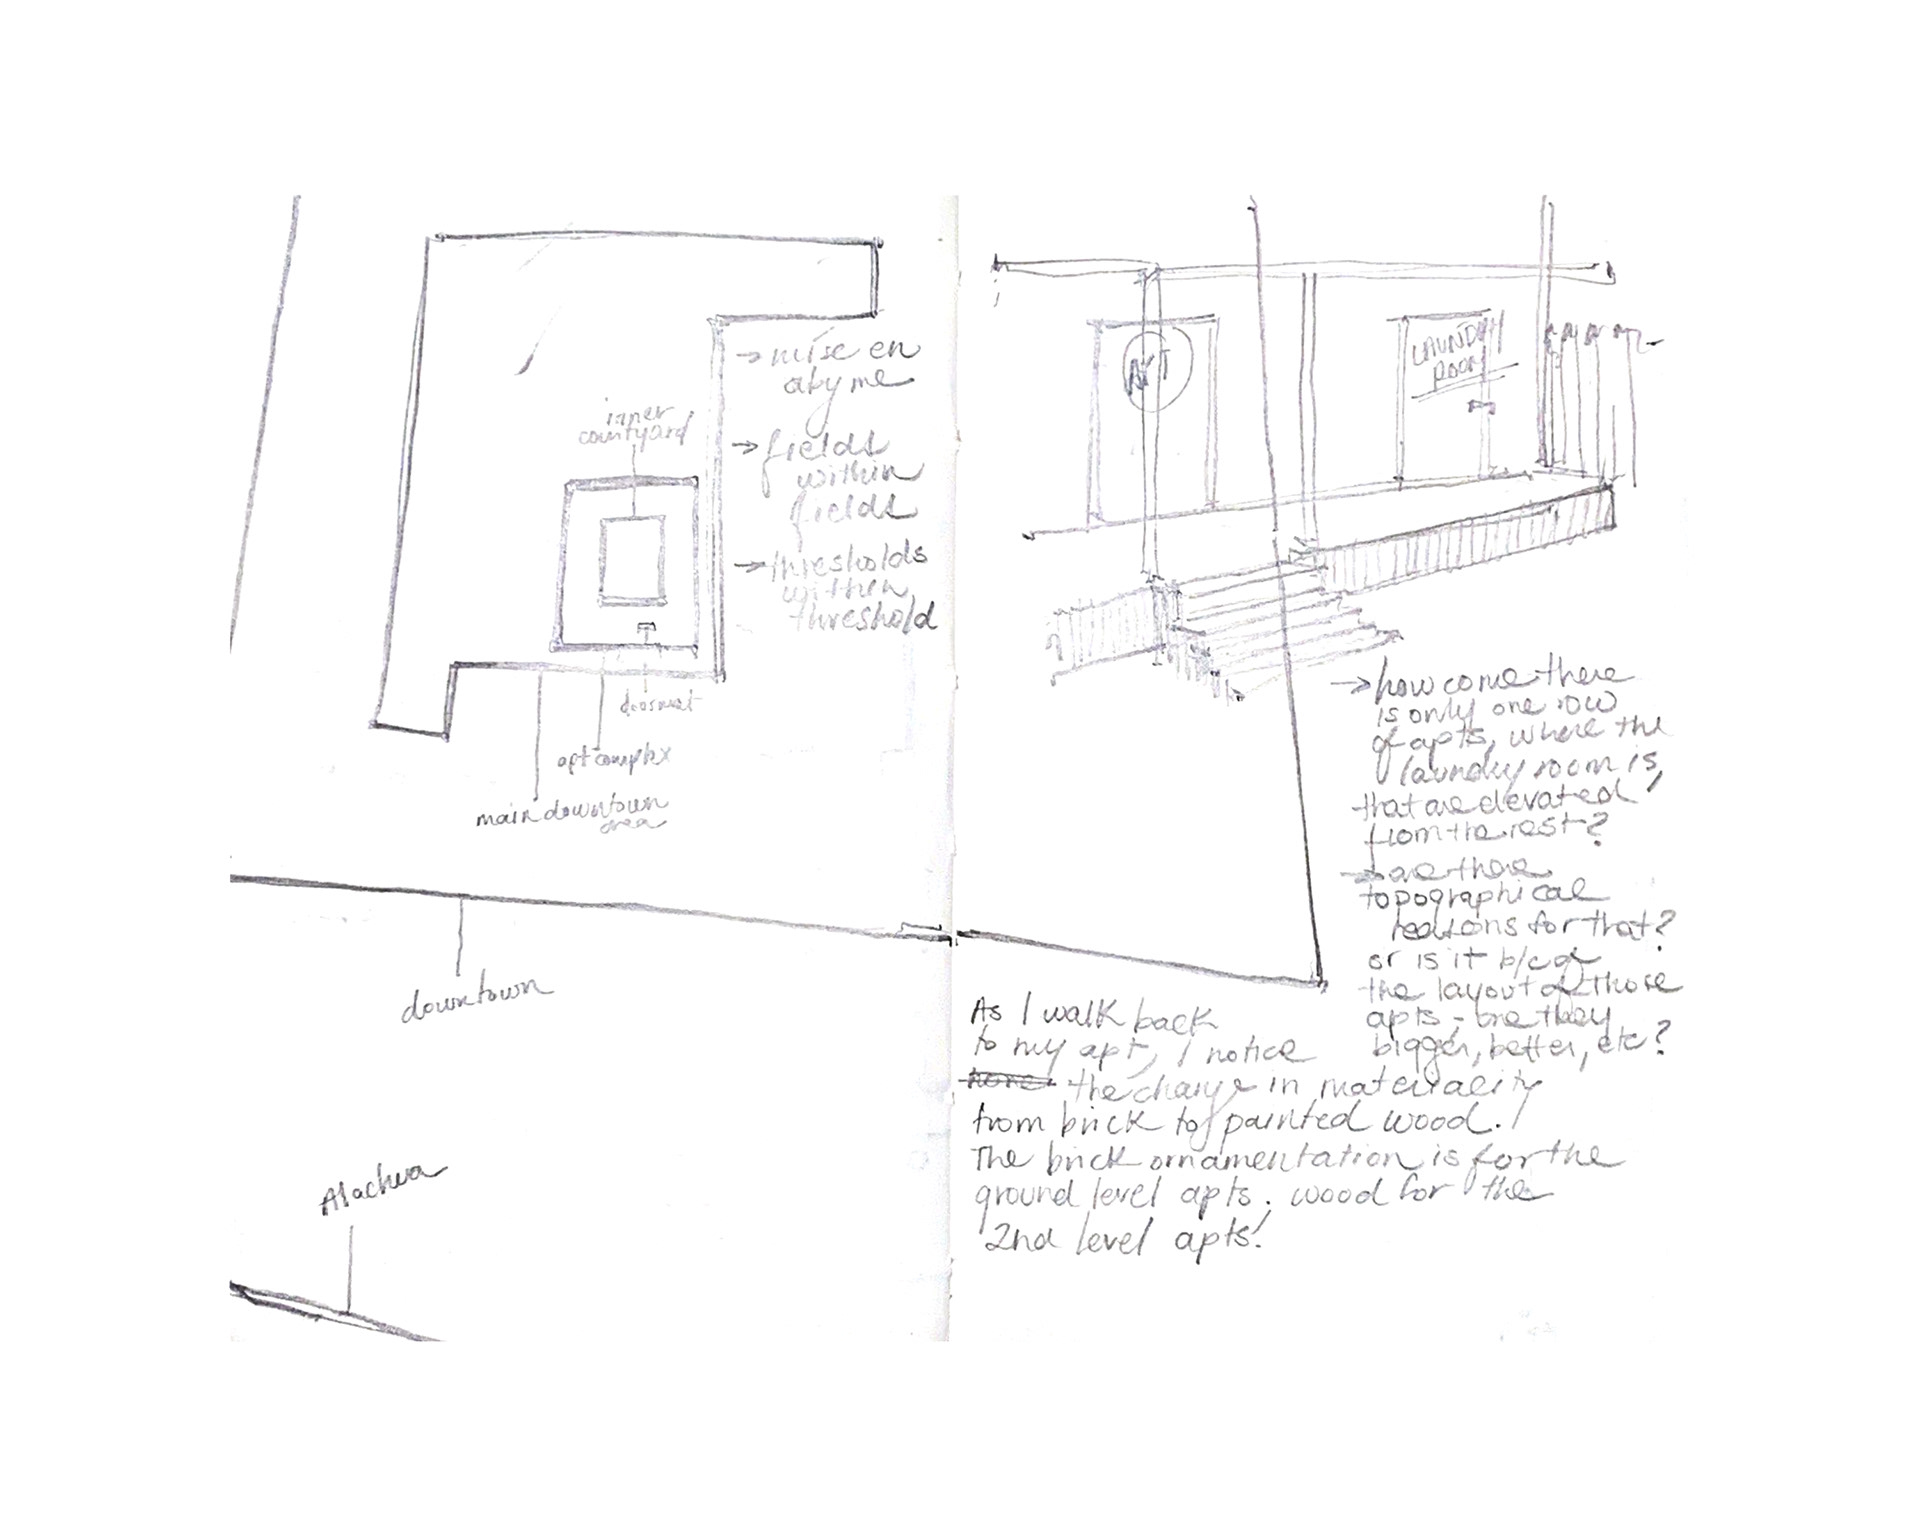 → mise en
abyme
→ fields
within
fields
→ thresholds
within
threshold
inner
courtyard
doormat
apt complex
main downtown
area
downtown
Alachua
APT
LAUNDRY
ROOM
→ how come there
is only one row
of apts, where the
laundry room is,
that are elevated
from the rest?
→ are there
topographical
reasons for that?
or is it b/c of
the layout of those
apts - are they
bigger, better, etc?
As I walk back
to my apt, I notice
the change in materiality
from brick to painted wood.
The brick ornamentation is for the
ground level apts; wood for the
2nd level apts.